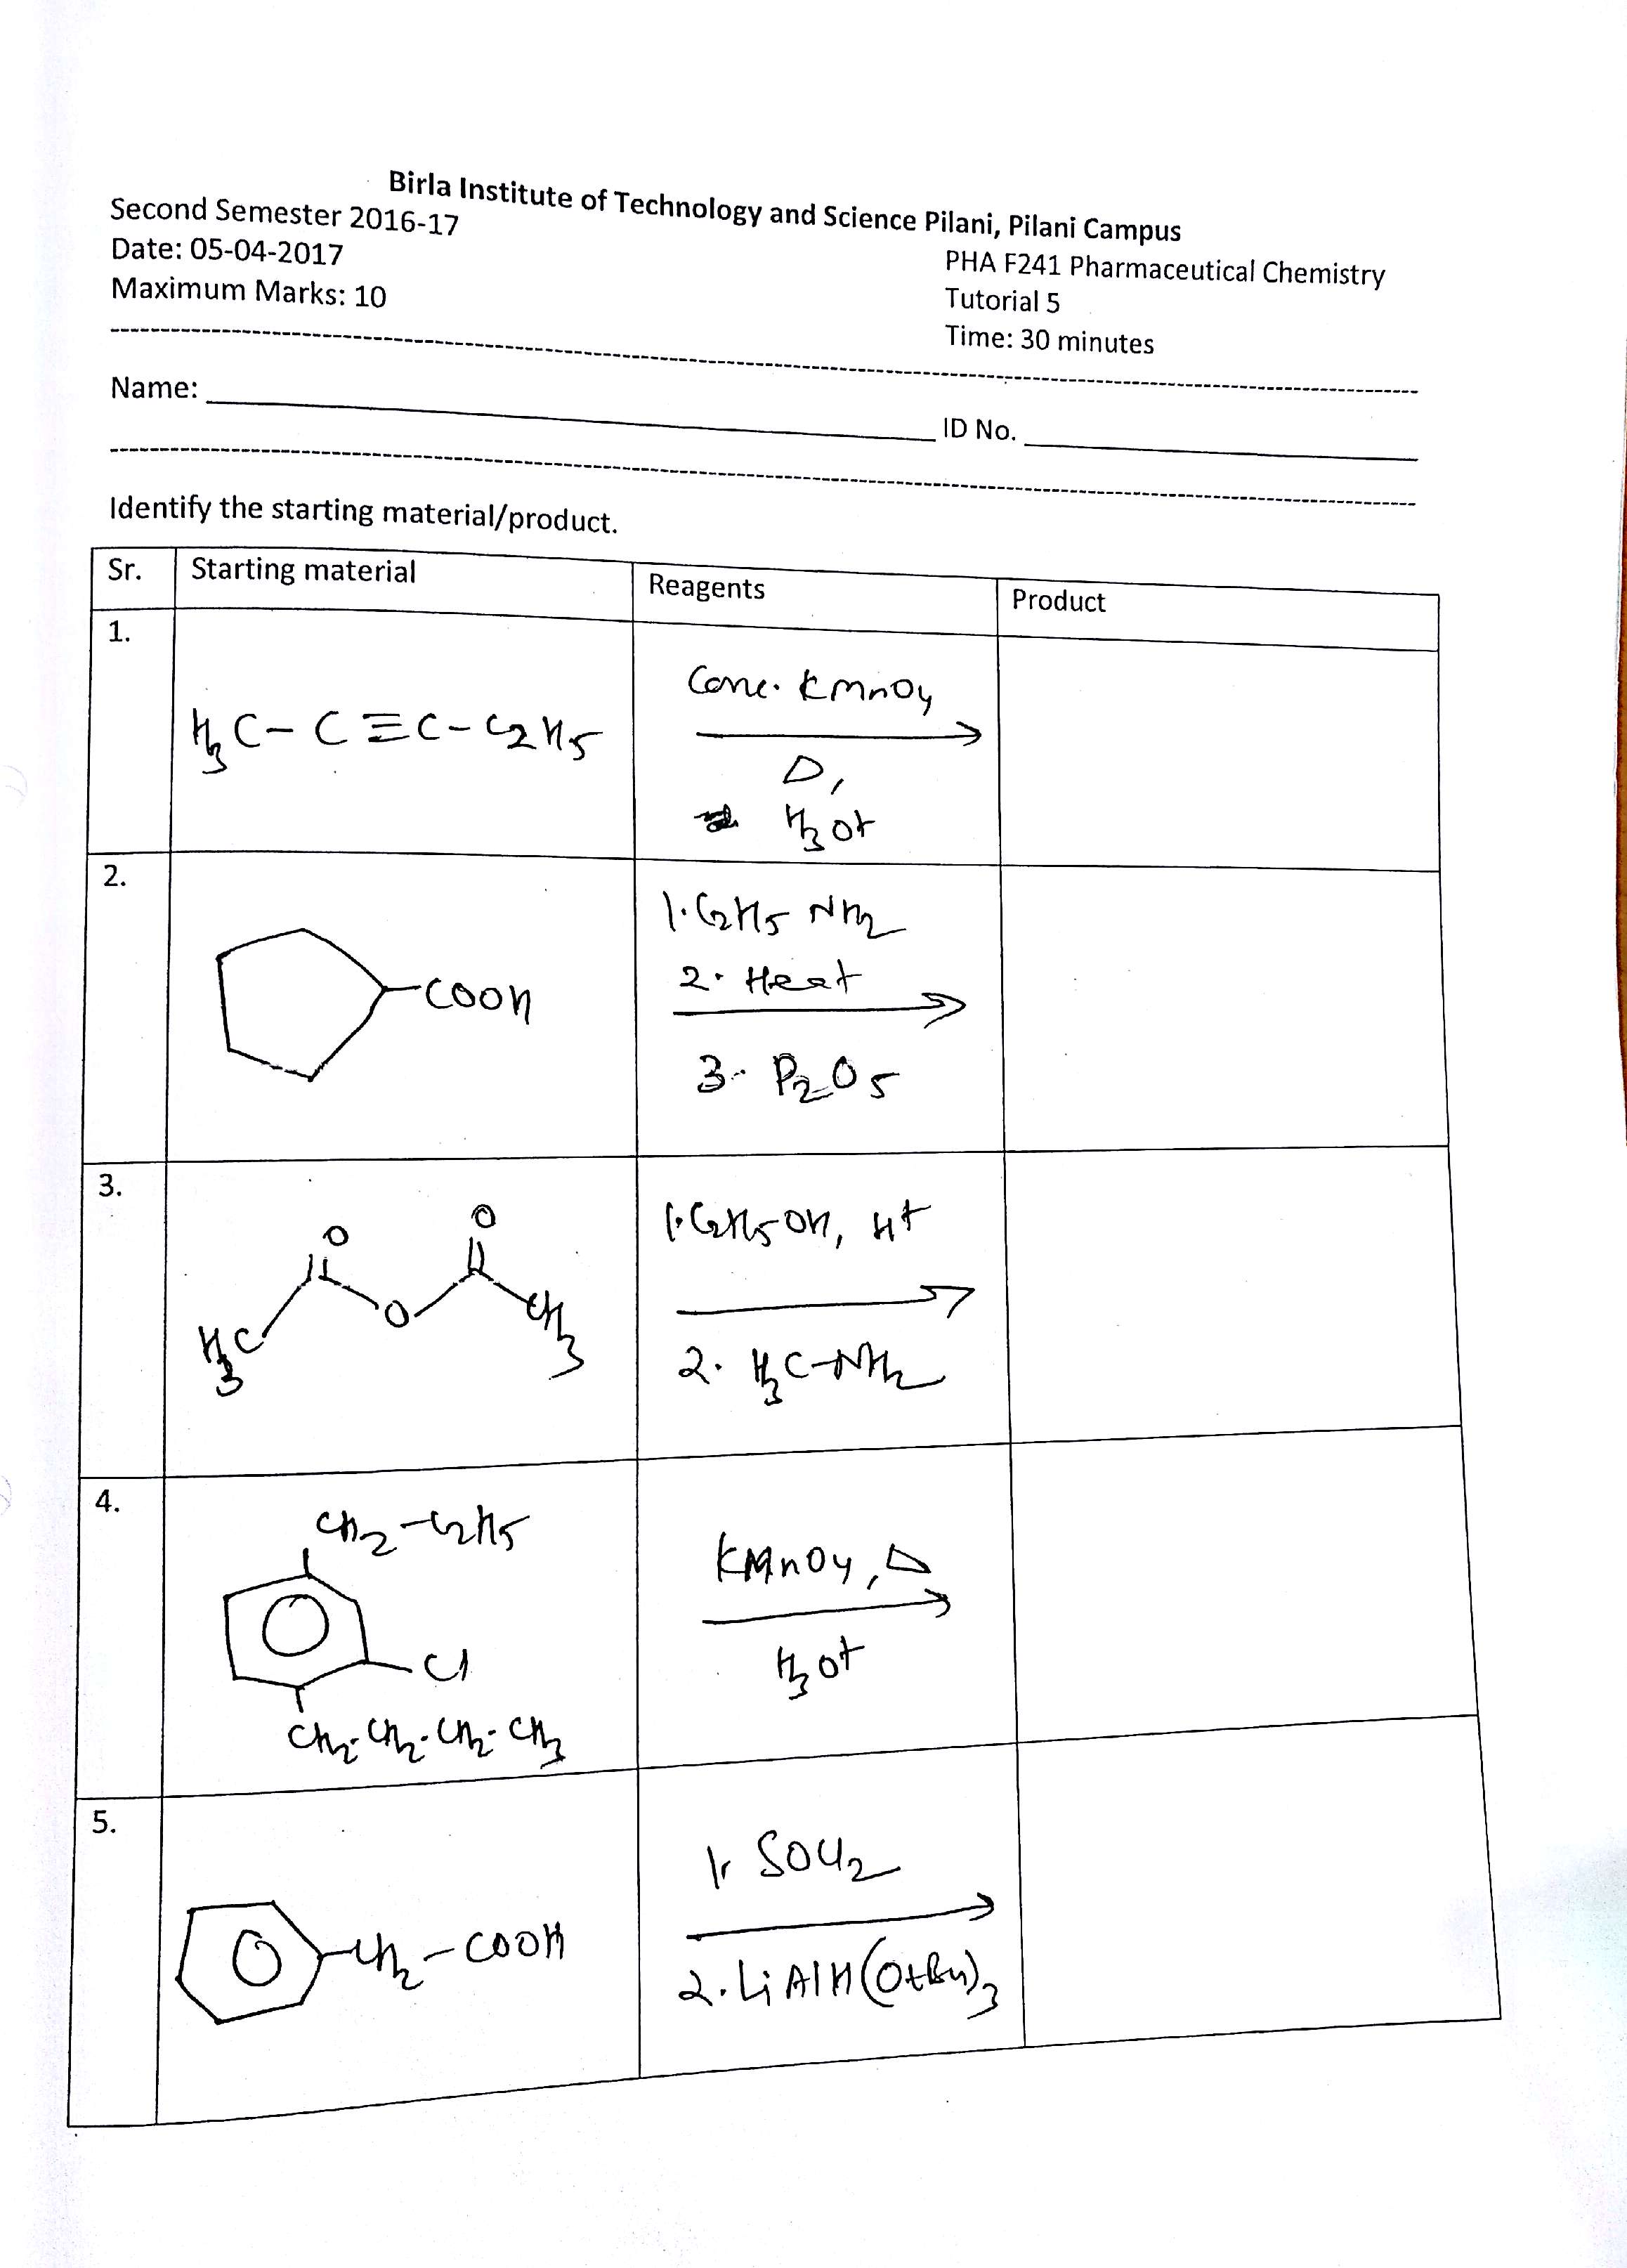 Birla Institute of Technology and Science Pilani, Pilani Campus
Second Semester 2016-17
PHA F241 Pharmaceutical Chemistry
Date: 05-04-2017
Tutorial 5
Maximum Marks: 10
Time: 30 minutes
Name: ID No.
Identify the starting material/product.
Sr. Starting material Reagents Product
1.
H3C-C≡C-C2H5
Conc. KMnO4
Δ,
H3O+
2.
COOH
1. C2H5 NH2
2. Heat
3. P2O5
3.
O O
H3C O CH3
1. C2H5OH, H+
2. H3C-NH2
4.
CH2-C2H5
Cl
CH2-CH2-CH2-CH3
KMnO4, Δ
H3O+
5.
CH2-COOH
1. SOCl2
2. LiAlH(OtBu)3